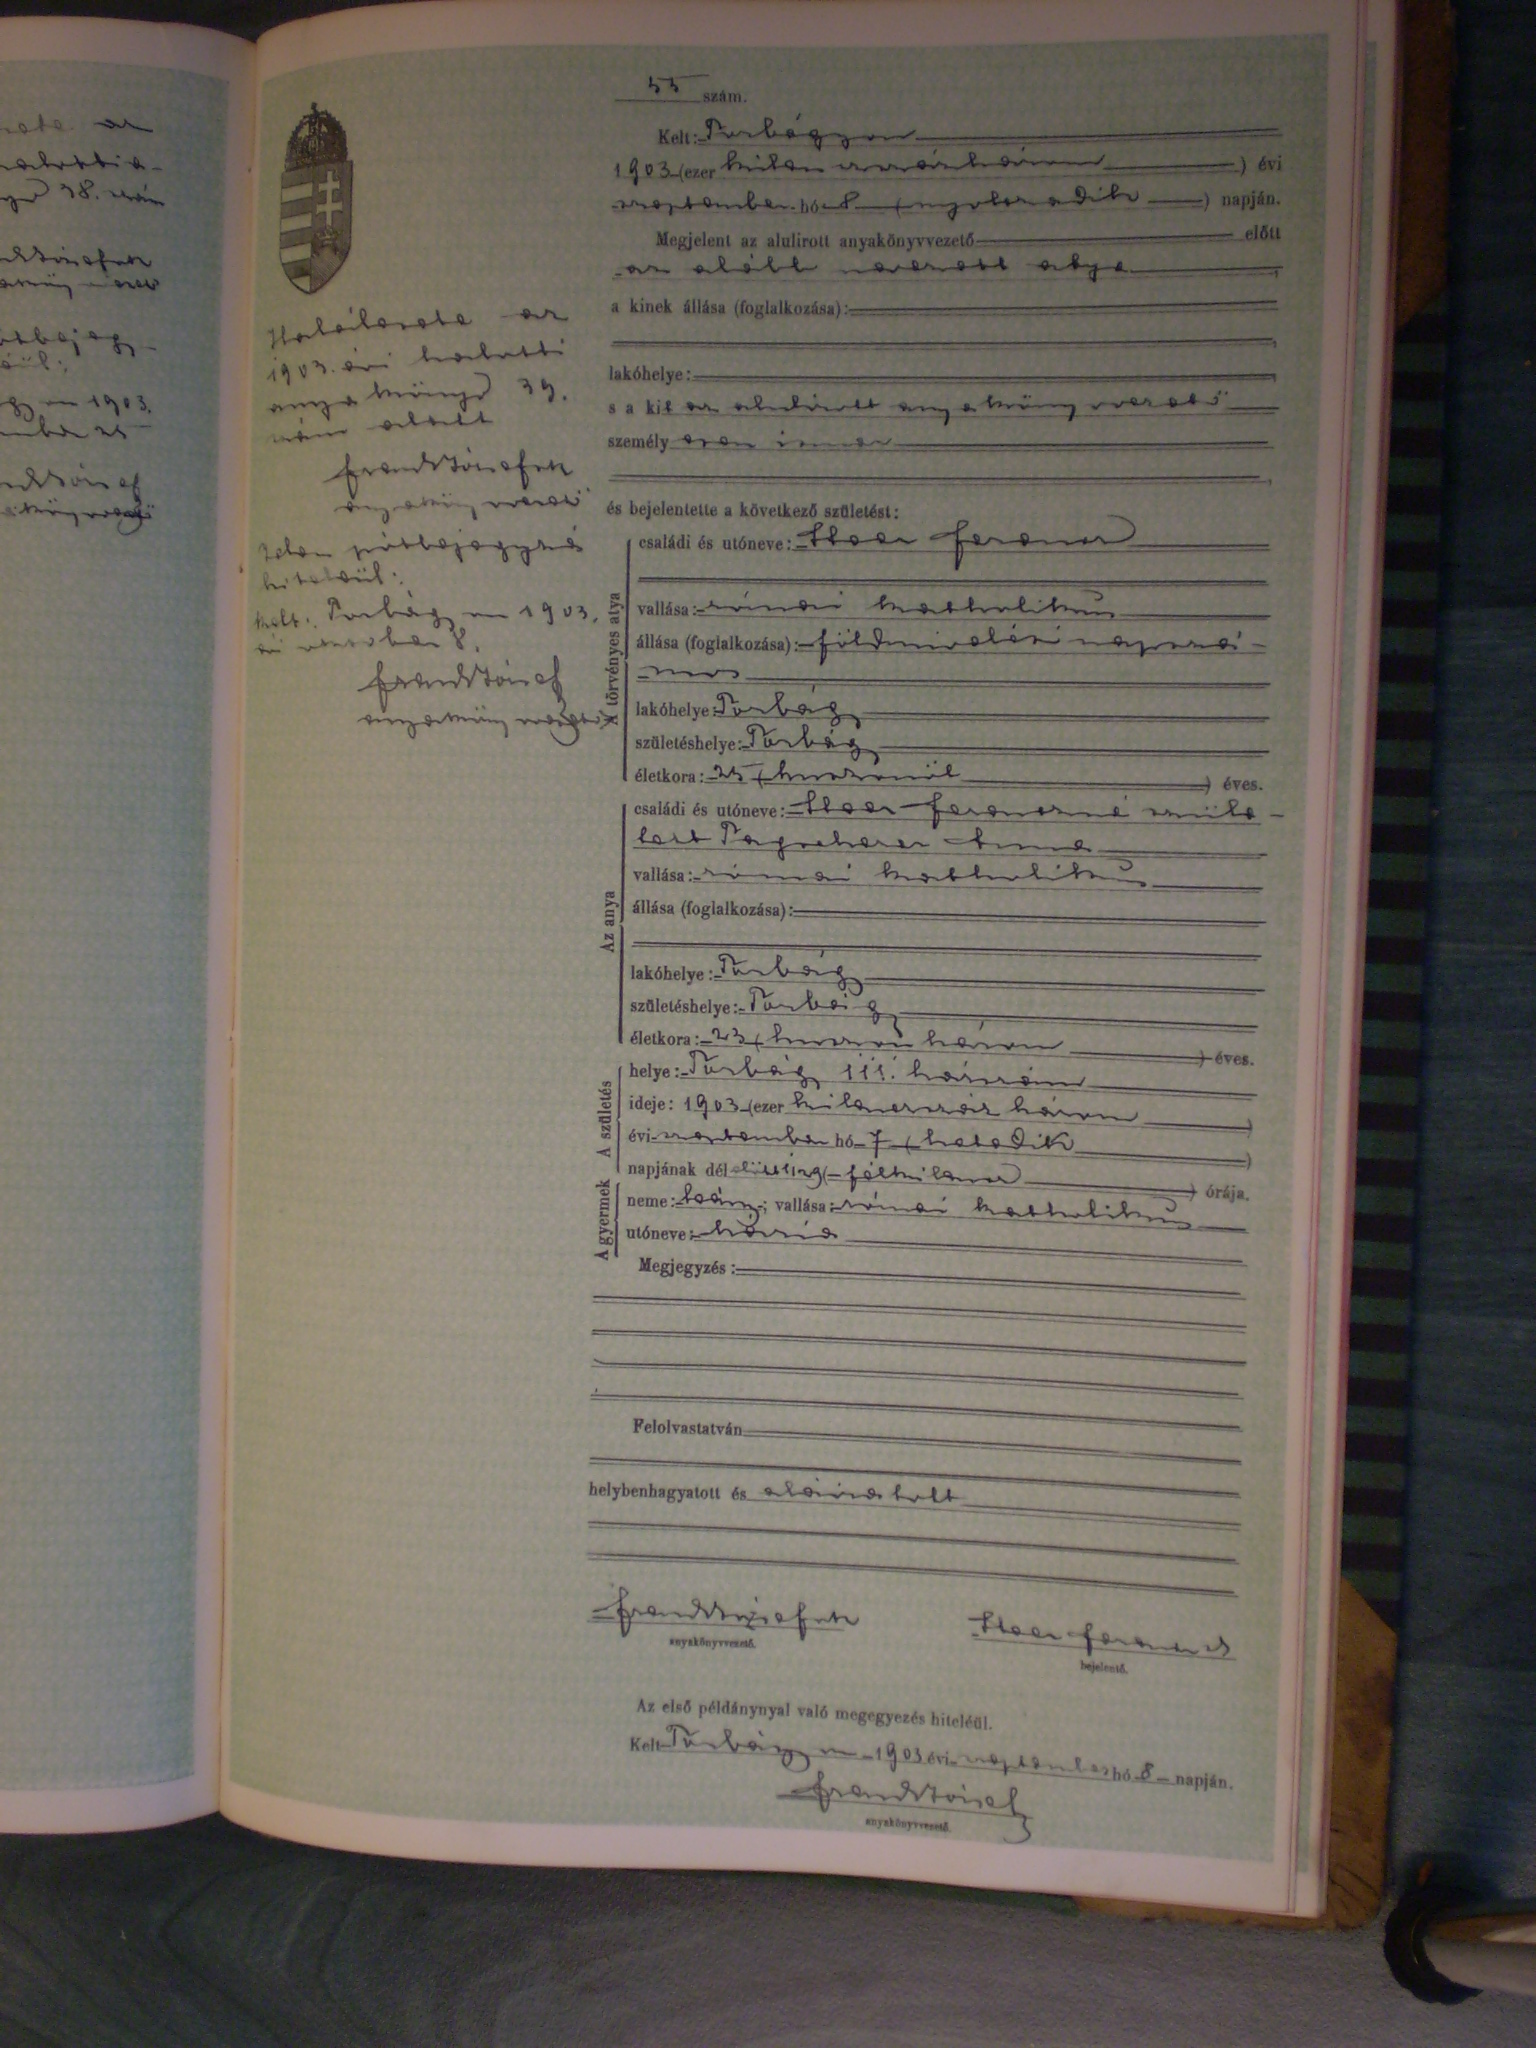 55 szám.
Kelt: Torbágyon
1903 (ezer kilencszázhárom) évi
szeptember hó 8 (nyolczadik) napján.
Megjelent az alulirott anyakönyvvezető előtt
az alább nevezett atya
a kinek állása (foglalkozása):
lakóhelye:
s a kit az alulirott anyakönyvvezető
személy esen ismer
és bejelentette a következő születést:
A törvényes atya
családi és utóneve: Ferencz
vallása: római katholikus
állása (foglalkozása): földmivelési napszá-
mos
lakóhelye: Torbágy
születéshelye: Torbágy
életkora: 25 (huszonöt) éves.
Az anya
családi és utóneve: Ferenczné szüle-
tett Anna
vallása: római katholikus
állása (foglalkozása):
lakóhelye: Torbágy
születéshelye: Torbágy
életkora: 23 (huszonhárom) éves.
A születés
helye: Torbágy 111. házszám
ideje: 1903 (ezer kilenczszáz három)
évi szeptember hó 7 (hetedik)
napjának dél előtti (félkilencz) órája.
A gyermek
neme: leány; vallása: római katholikus
utóneve: Mária
Megjegyzés:
Felolvastatván
helybenhagyatott és aláiratott
Frank Józsefnk
anyakönyvvezető.
Ferencz
bejelentő.
Az első példánynyal való megegyezés hiteléül.
Kelt Torbágyon 1903 évi szeptember hó 8 napján.
Frank József
anyakönyvvezető.
Halálesete az
1903. évi halotti
anyakönyv 39.
szám alatt
Frank Józsefnk
anyakönyvvezető
Jelen pótbejegyzés
hiteleül:
Kelt: Torbágyon 1903.
évi 8.
Frank József
anyakönyvvezető
38. szám
1903.